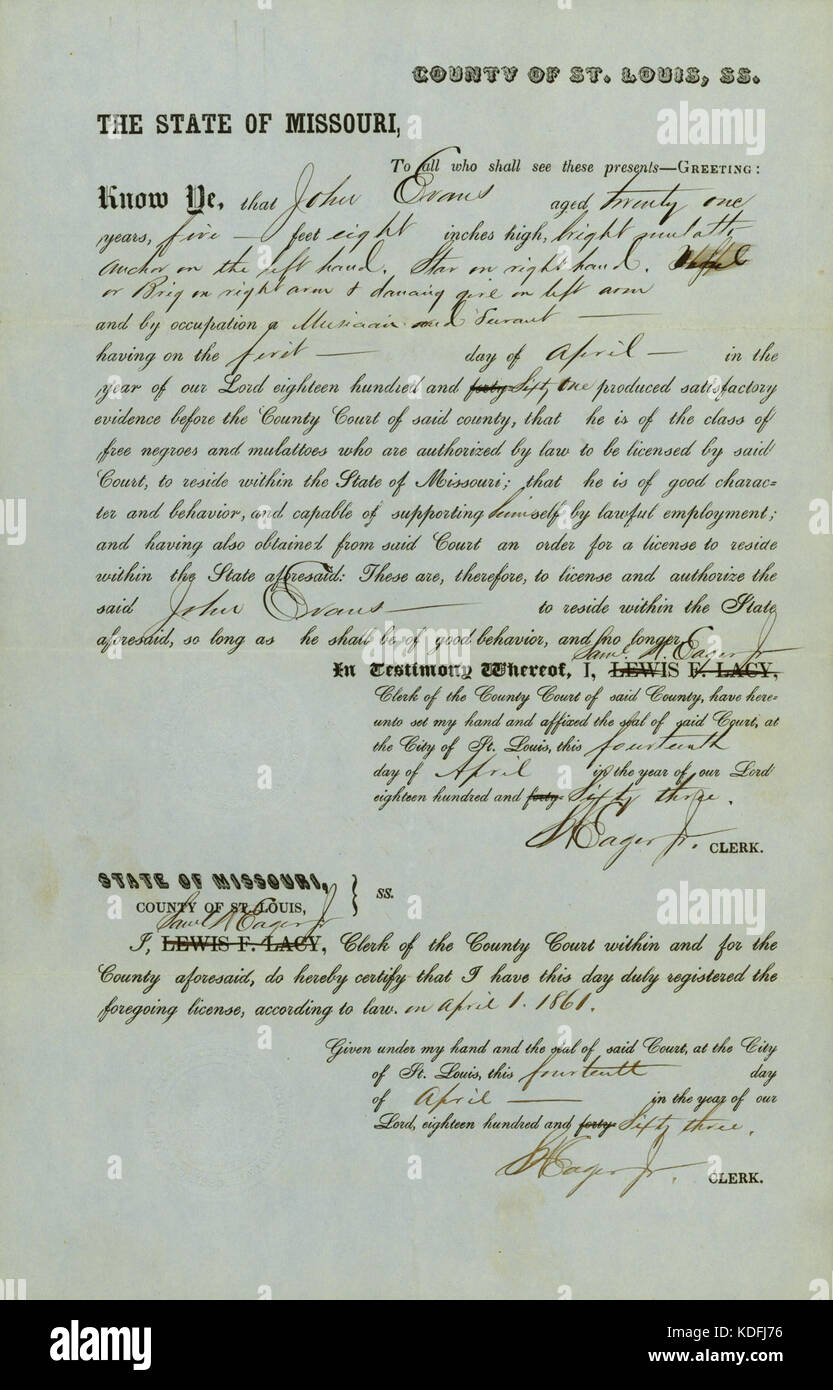 COUNTY OF ST. LOUIS, SS.
THE STATE OF MISSOURI,
To all who shall see these presents—GREETING:
Know Ye, that John Evans aged twenty one
years, five — feet eight inches high, bright mulatto,
anchor on the left hand. Star on right hand.
or Brig on right arm & dancing girl on left arm
and by occupation a Musician and Servant —
having on the first — day of April — in the
year of our Lord eighteen hundred and forty Sixty One produced satisfactory
evidence before the County Court of said county, that he is of the class of
free negroes and mulattoes who are authorized by law to be licensed by said
Court, to reside within the State of Missouri; that he is of good charac=
ter and behavior, and capable of supporting himself by lawful employment;
and having also obtained from said Court an order for a license to reside
within the State aforesaid: These are, therefore, to license and authorize the
said John Evans — to reside within the State
aforesaid, so long as he shall be of good behavior, and no longer.
Saml. H. Eager Jr
In Testimony Whereof, I, LEWIS F. LACY,
Clerk of the County Court of said County, have here-
unto set my hand and affixed the seal of said Court, at
the City of St. Louis, this fourteenth
day of April in the year of our Lord
eighteen hundred and forty Sixty three.
SHEager Jr. CLERK.
STATE OF MISSOURI,
COUNTY OF ST. LOUIS, } ss.
Saml H Eager Jr
I, LEWIS F. LACY, Clerk of the County Court within and for the
County aforesaid, do hereby certify that I have this day duly registered the
foregoing license, according to law. on April 1. 1861.
Given under my hand and the seal of said Court, at the City
of St. Louis, this fourteenth day
of April — in the year of our
Lord, eighteen hundred and forty Sixty three.
SHEager Jr. CLERK.
a alamy stock photo
alamy
Image ID: KDFJ76
www.alamy.com